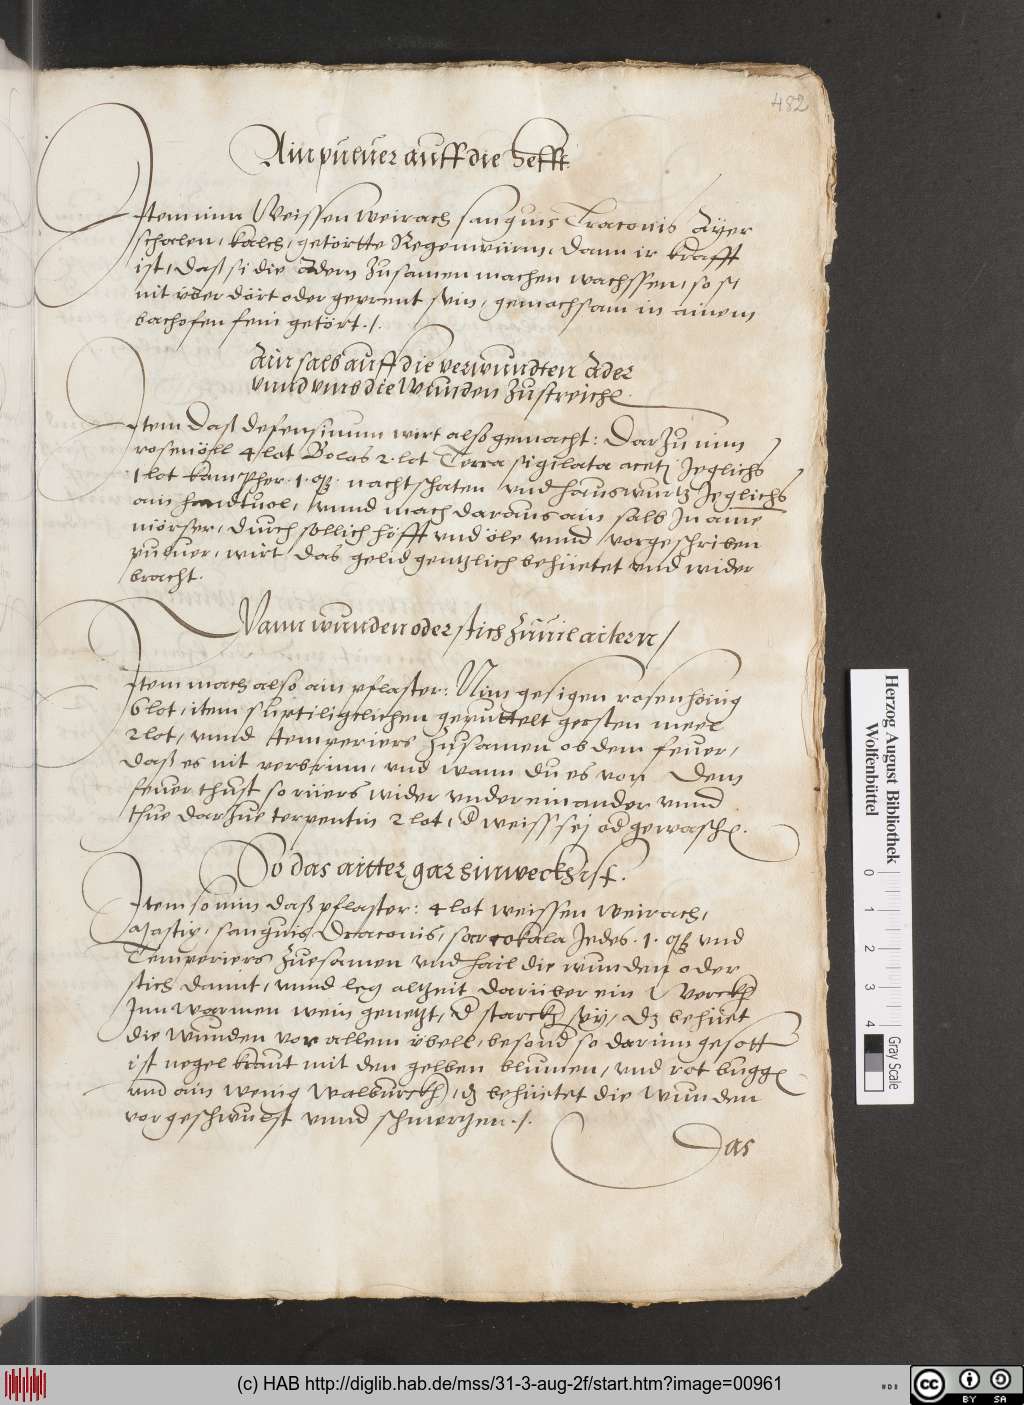 482
Ain puluer auff die hefft.
Item nim Weissen weirach sanguis Traconis Ayer
schalen, kalch, getörtte Regenwürm, dann ir krafft
ist, daß si die Adern zusamen machen wachssen, so si
nit über dört oder geprent sein, gemachsam in ainem
bachofen fein getört ./.
Ain salb auff die verwundten Ader
vnnd vmb die Wunden zustreichen
Item daß defensiuum wirt also gemacht: Darzu nim
rosenöll 4 lot Bolus 2. lot Terra sigilata aceti Jeglichs
1 lot kampher .1. qß. nachtschaten vnd hauswurtz Jeglichs
ain handtuol, vnnd mach daraus ain salb In aine
mörser, durch sollich höfft vnd öle vnnd vorgeschriben
puluer, wirt das gelid gentzlich behüetet vnd wider
bracht.
Wann wunden oder stich zuuil aitern /
Item mach also ain pflaster: Nim gesigen rosenhönig
6 lot, item geputtelt gersten meel
2 lot, vnnd temperiers zusamen ob dem feuer,
daß es nit verbrinn, vnd wann du es von dem
feuer thust so rüers wider vnder einander vnnd
thue darzue terpentin 2 lot, d weiss sej od gewaschen.
So das aitter gar hinweckh ist.
Item so nim daß pflaster: 4 lot weissen weirach,
Mastix, sanguis Draconis, sarcokala Jedes .1. qß vnd
Temperiers zuesamen vnd hail die wunden oder
stich damit, vnnd leg altzeit darüber ein Werckh
Inn warmen wein genetzt, d starckh sey, dz behüet
die Wunden vor allem übell, besond so darinn gesott
ist negel kraut mit den gelben blumen, vnd rot buggen
vnd ain wenig walwurckh, dz behüetet die wunden
vor geschwulst vnnd schmertzen ./.
Das
Herzog August Bibliothek
Wolfenbüttel
0 1 2 3 4
Gray Scale
(c) HAB http://diglib.hab.de/mss/31-3-aug-2f/start.htm?image=00961
HAB
cc BY SA